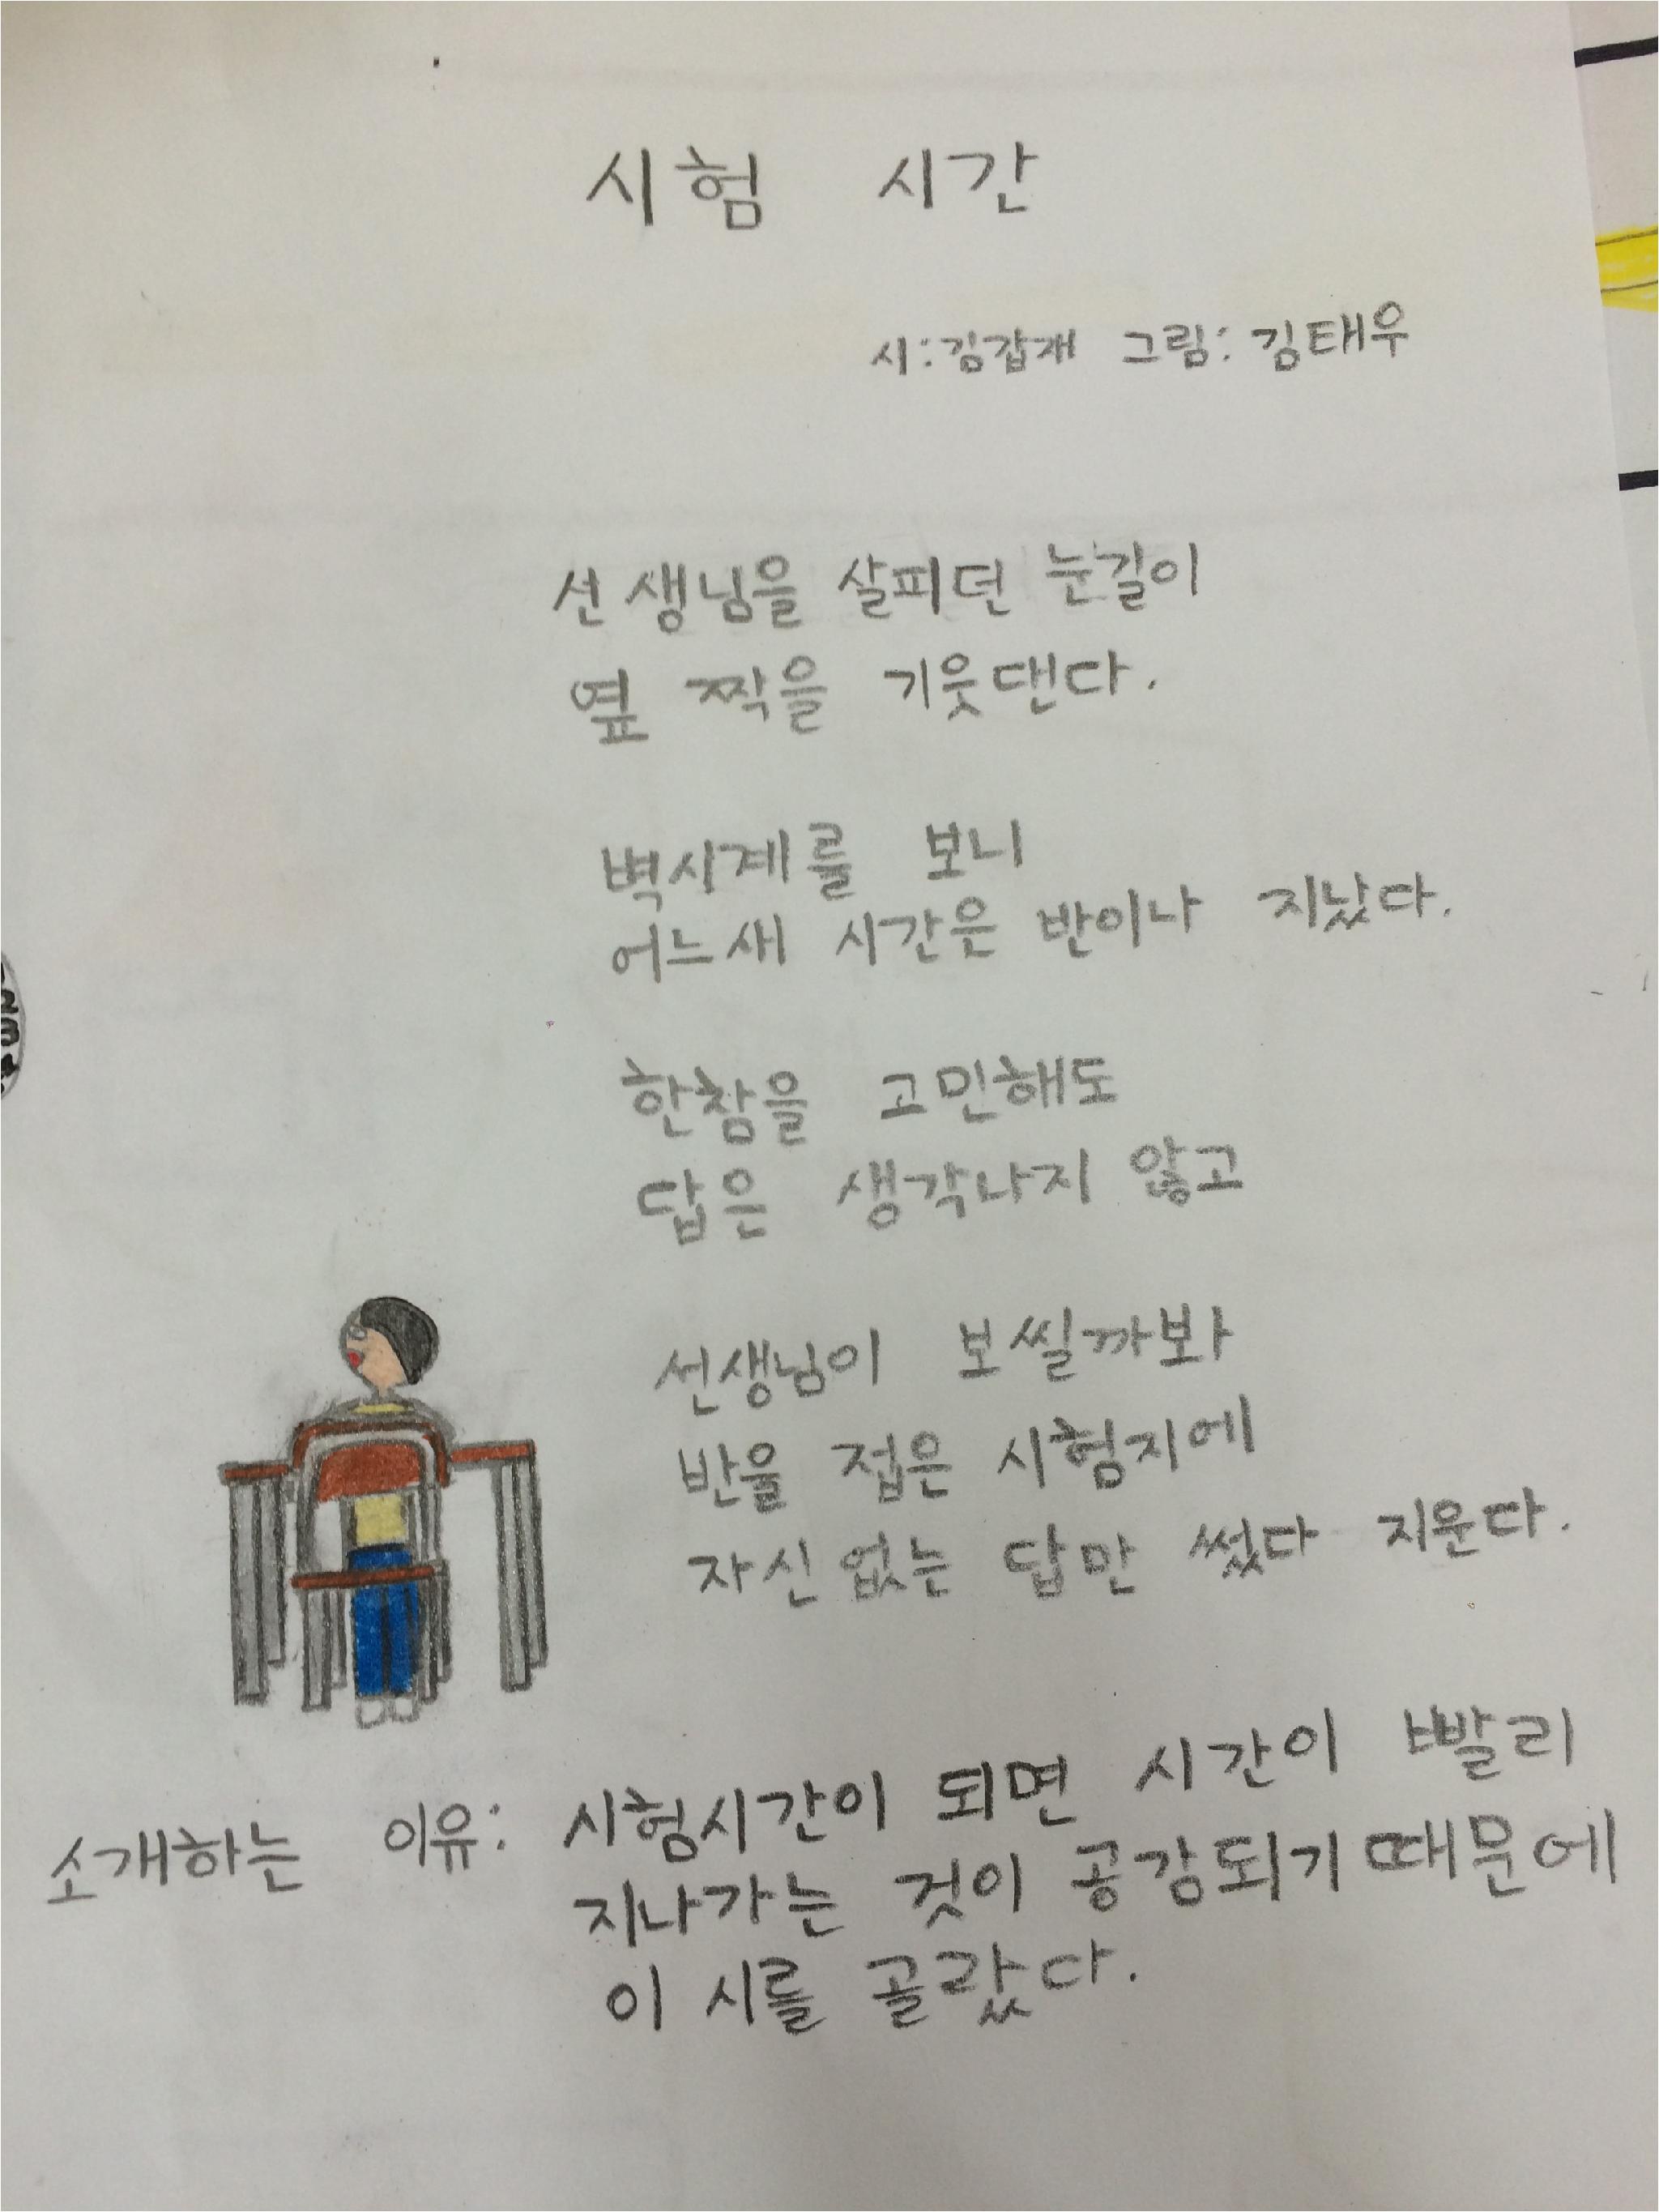 시험 시간
시:김갑재 그림: 김태우
선생님을 살피던 눈길이
옆 짝을 기웃댄다.
벽시계를 보니
어느새 시간은 반이나 지났다.
한참을 고민해도
답은 생각나지 않고
선생님이 보씰까봐
반을 접은 시험지에
자신없는 답만 썼다 지운다.
소개하는 이유: 시험시간이 되면 시간이 빨리
지나가는 것이 공감되기때문에
이 시를 골랐다.